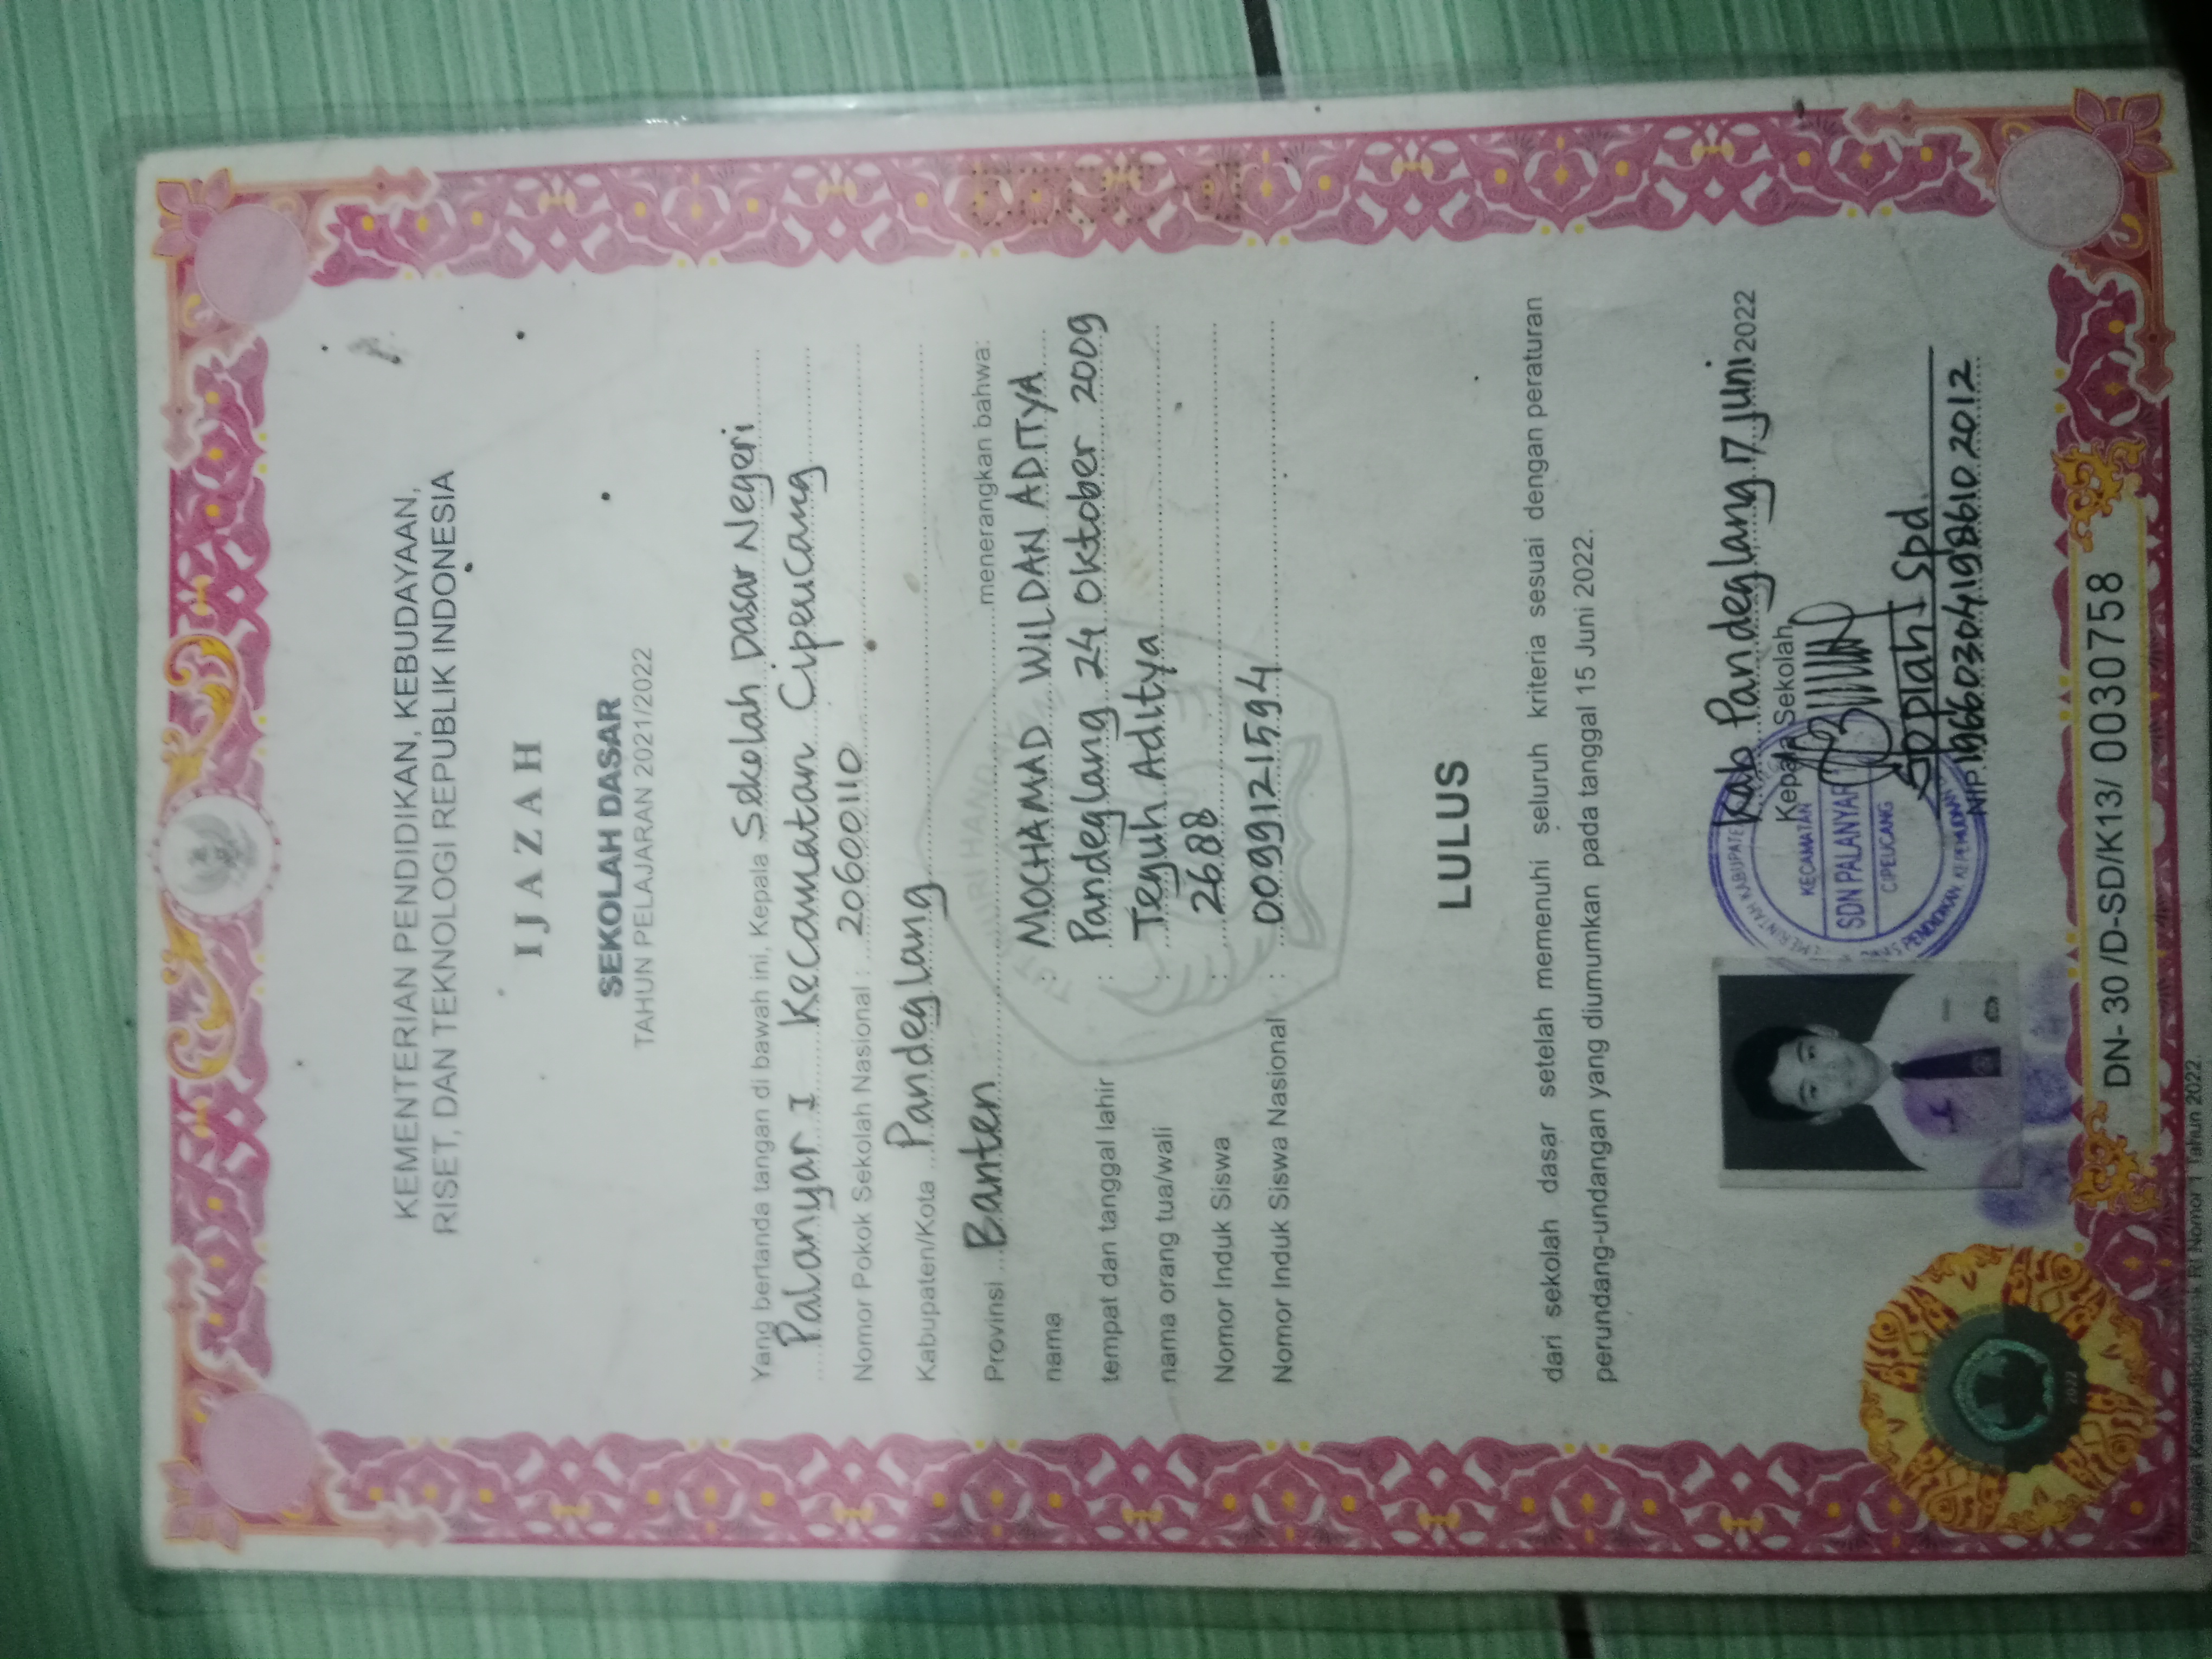 KEMENTERIAN PENDIDIKAN, KEBUDAYAAN,
RISET, DAN TEKNOLOGI REPUBLIK INDONESIA
IJAZAH
SEKOLAH DASAR
TAHUN PELAJARAN 2021/2022
Yang bertanda tangan di bawah ini, Kepala Sekolah Dasar Negeri
Palanyar I Kecamatan Cipeucang
Nomor Pokok Sekolah Nasional : 20600110
Kabupaten/Kota Pandeglang
Provinsi Banten menerangkan bahwa:
nama : MOCHAMAD WILDAN ADITYA
tempat dan tanggal lahir : Pandeglang 24 Oktober 2009
nama orang tua/wali : Teguh Aditya
Nomor Induk Siswa : 2688
Nomor Induk Siswa Nasional : 0099121594
TUT WURI HANDAYANI
LULUS
dari sekolah dasar setelah memenuhi seluruh kriteria sesuai dengan peraturan
perundang-undangan yang diumumkan pada tanggal 15 Juni 2022.
Kab Pandeglang 17 Juni 2022
Kepala Sekolah,
KECAMATAN
SDN PALANYAR
CIPEUCANG
Sopiah Spd.
NIP. 196603041986102012
2022
DN- 30 /D-SD/K13/ 0030758
Persesjen Kemendikbudristek RI Nomor 1 Tahun 2022.